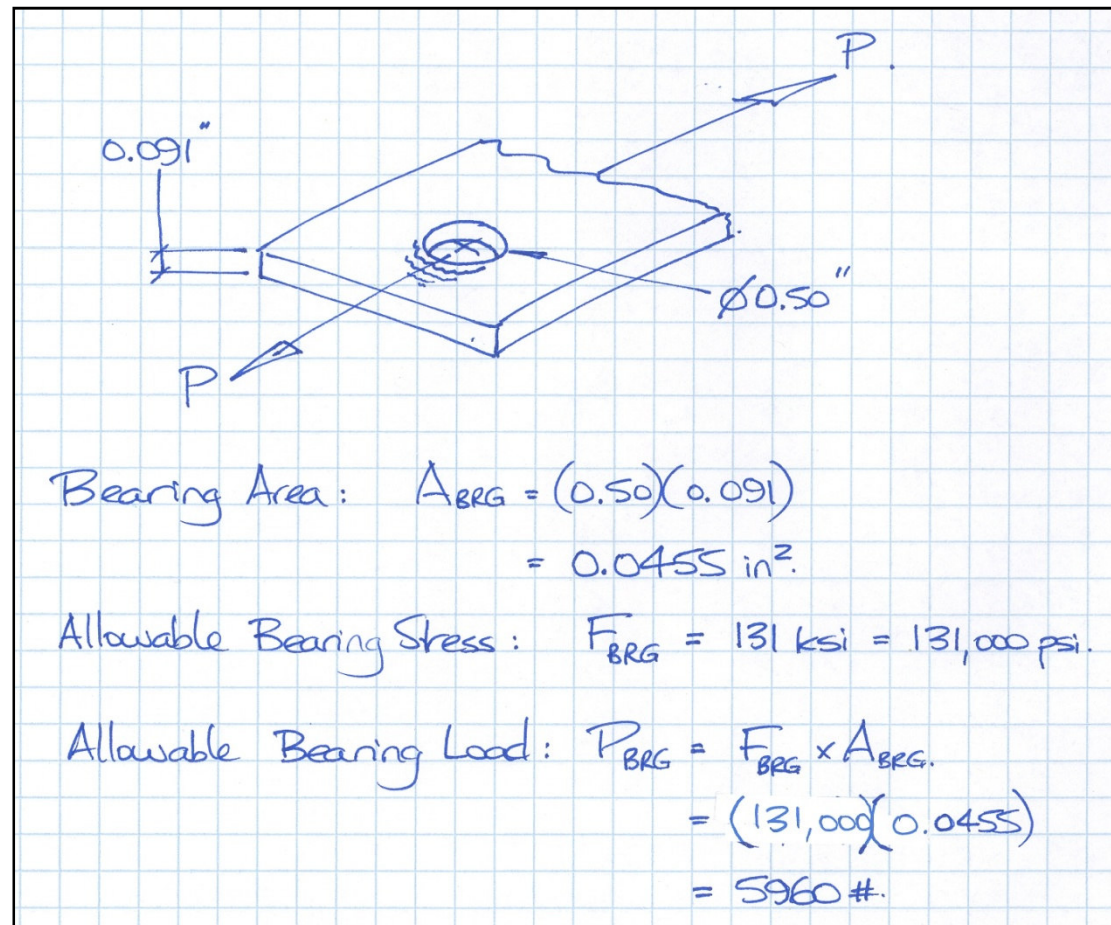 P.
0.091"
Ø0.50"
P
Bearing Area: A_BRG = (0.50)(0.091)
= 0.0455 in².
Allowable Bearing Stress: F_BRG = 131 ksi = 131,000 psi.
Allowable Bearing Load: P_BRG = F_BRG × A_BRG.
= (131,000)(0.0455)
= 5960 #.